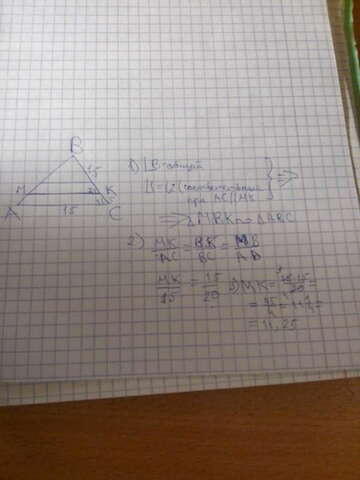 B
15
M
K
A
15
C
1) ∠B-общий
∠1=∠2(соответственные
при AC||MK
=> △MBK∞△ABC
2) MK/AC = BK/BC = MB/AB
MK/15 = 15/20
MK=
=
= 11,25